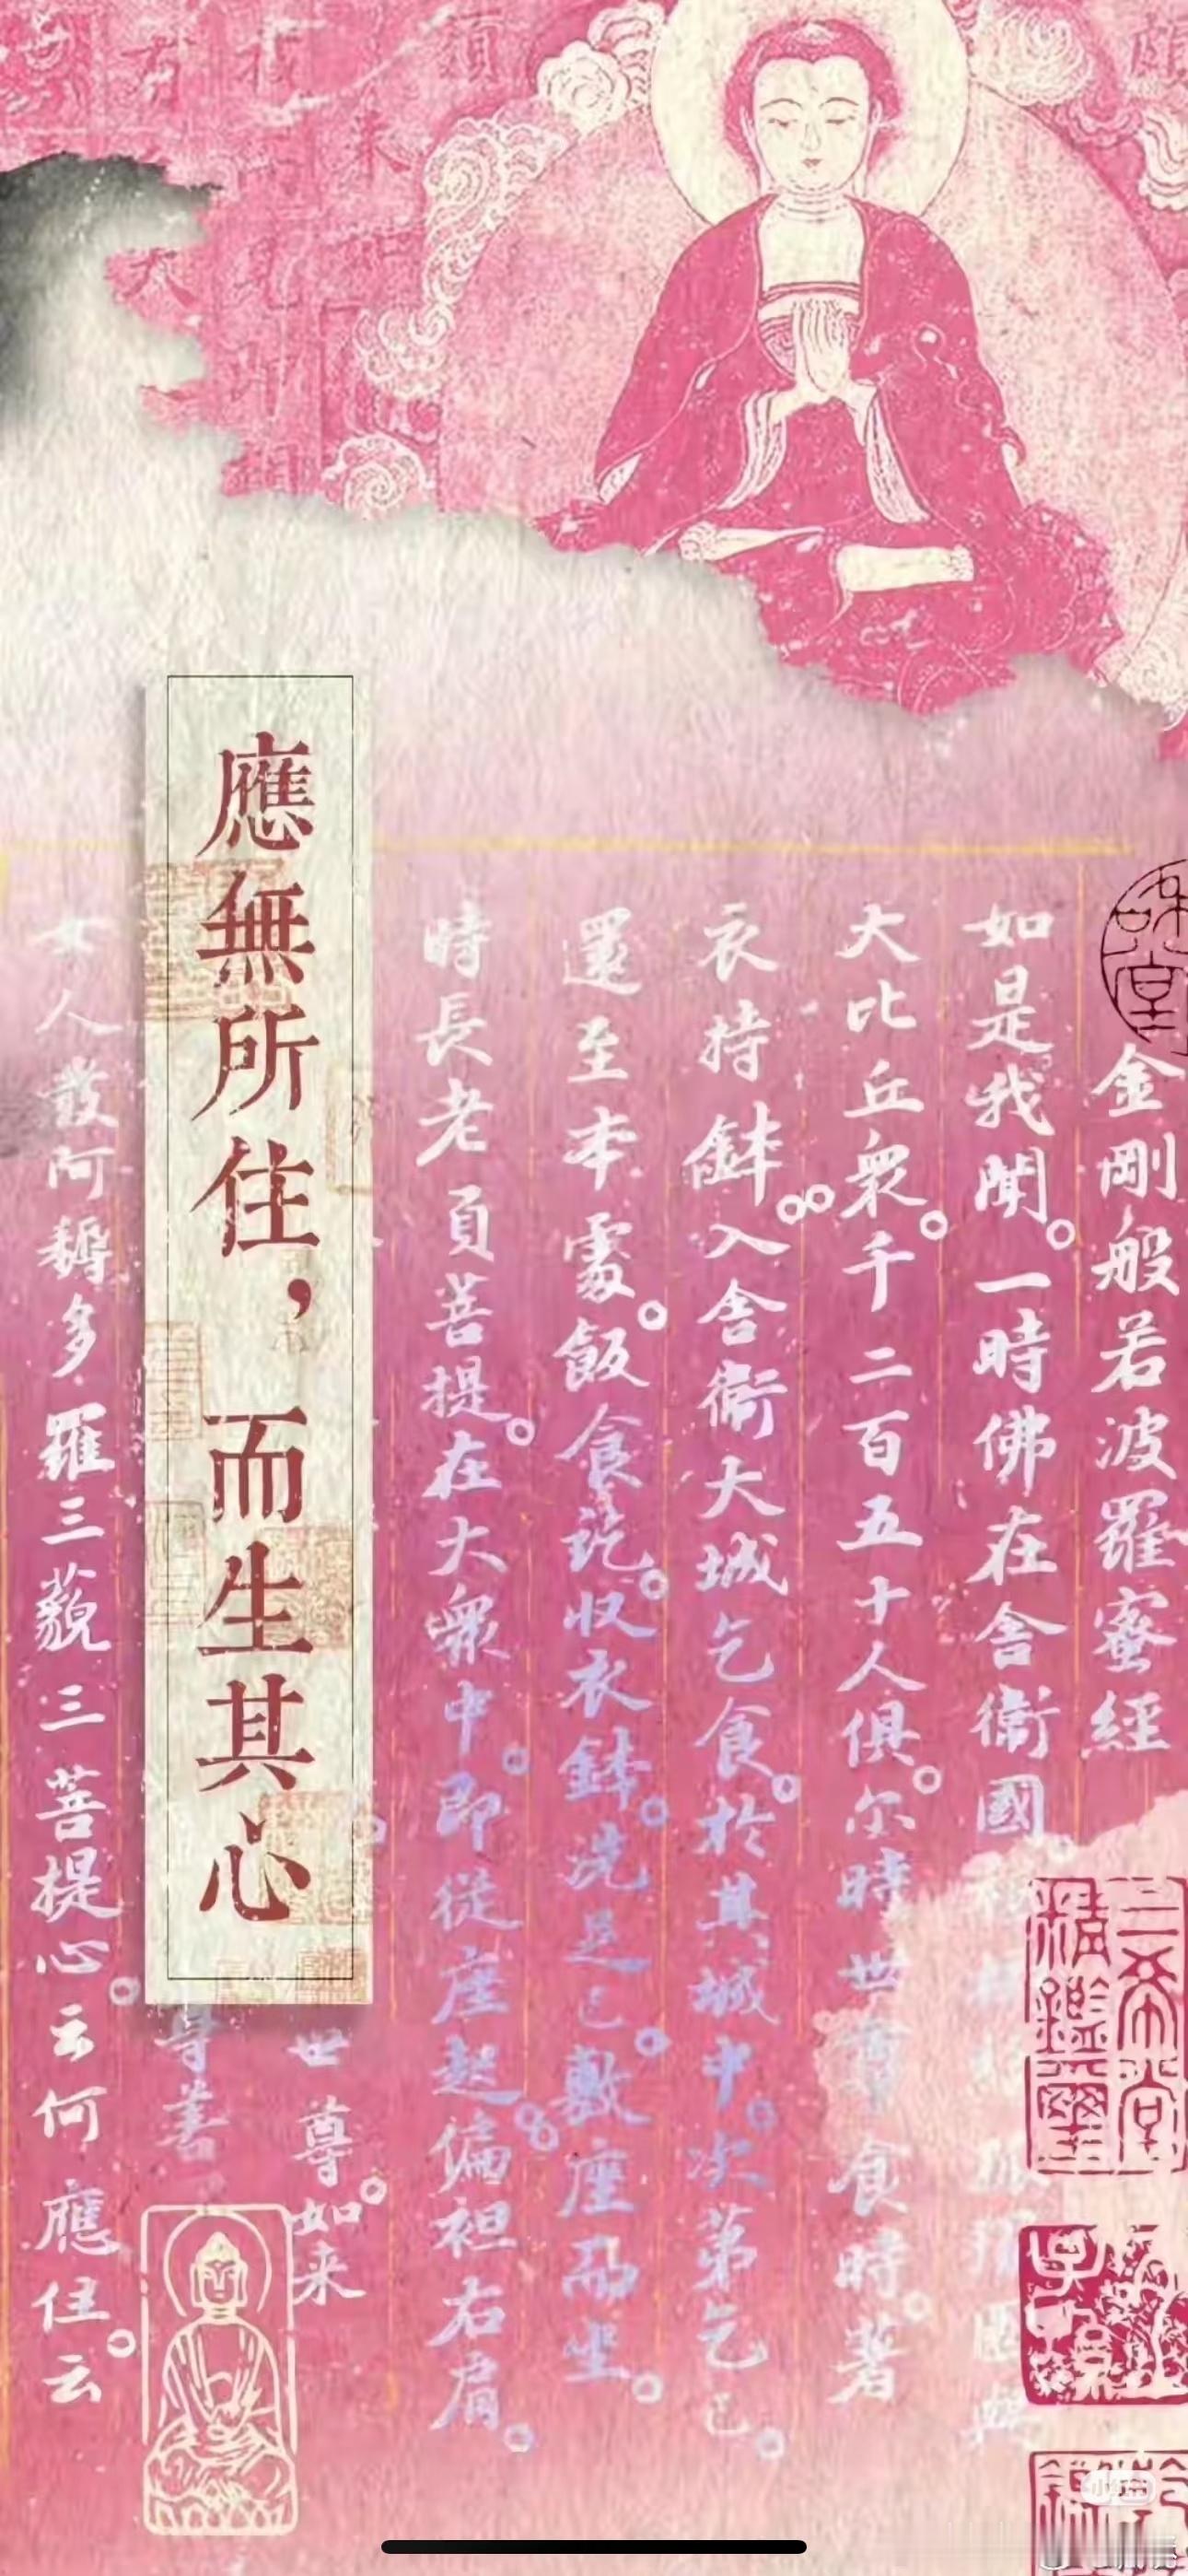 金剛般若波羅蜜經
如是我聞。一時佛在舍衛國
大比丘衆。千二百五十人俱。尔時世尊食時。著
衣持鉢。入舍衛大城乞食。於其城中。次第乞已。
還至本處。飯食訖。收衣鉢。洗足已。敷座而坐。
時長老須菩提。在大衆中。即從座起。偏袒右肩。
世尊。如来
應無所住，而生其心
尊善
女人發阿耨多羅三藐三菩提心。云何應住。云
三希堂
精鑑璽